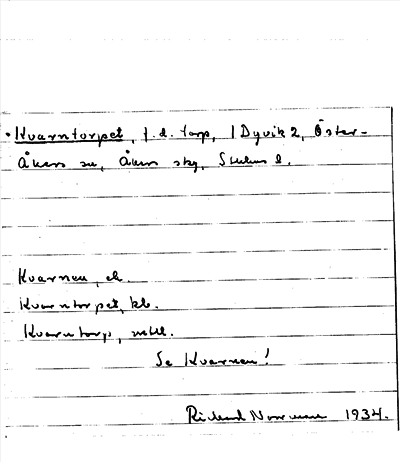 Kvarntorpet, f.d. torp, 1 Dyvik 2, Öster-
Åkers sn, Åkers skg, Sthlms l.
Kvarnen, ek.
Kvarntorpet, kb.
Kvarntorp, mtl.
Se Kvarnen!
Rickard 1934.